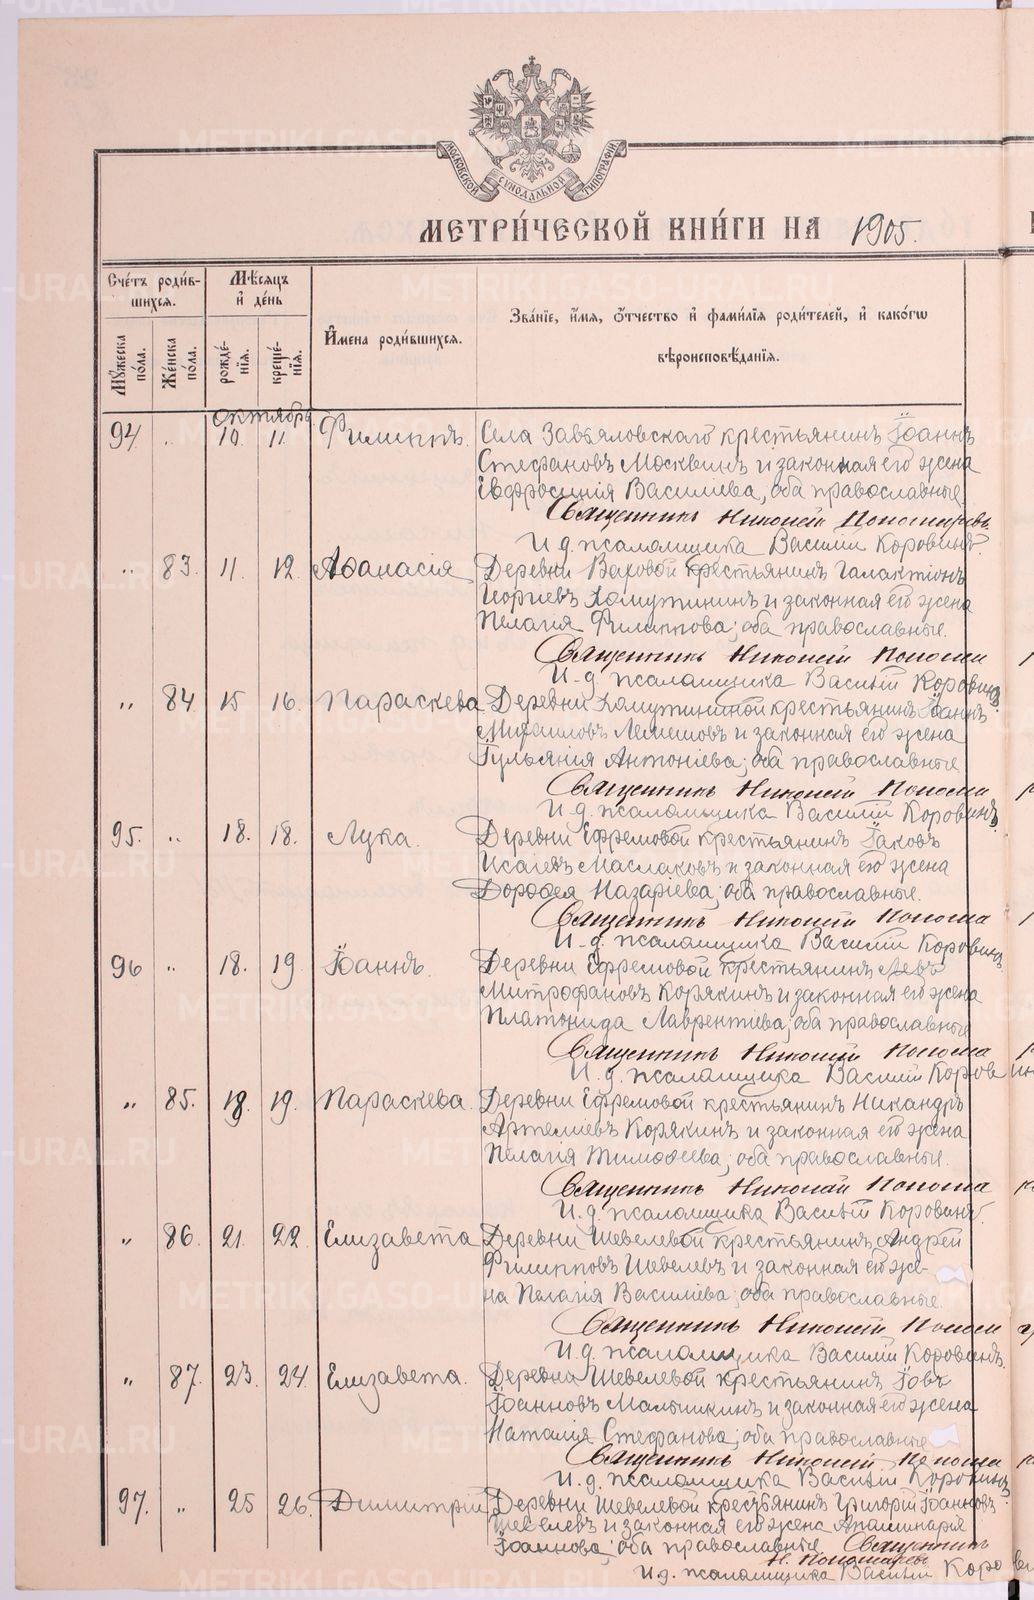 МОСКОВСКОЙ СѴНОДАЛЬНОЙ ТИПОГРАФІИ
МЕТРИ́ЧЕСКОЙ КНИ́ГИ НА 1905.
Сче́тъ роди́в-
шихся.
Мѣ́сяцъ
и҆ де́нь
Мꙋ́жеска
по́ла.
Же́нска
по́ла.
рожде́-
нїя.
креще́-
нїя.
И҆мена роди́вшихся.
Зва́нїе, и҆́мя, ѻ҆́тчество и҆ фами́лїя роди́телей, и҆ како́гѡ
вѣроисповѣ́данїя.
октябрь
94 " 10. 11. Филиппъ. Села Завьяловскаго крестьянинъ Іоаннъ
Стефановъ Москвинъ и законная его жена
Евфросинія Василіева, оба православные.
Священникъ Николай Пономаревъ.
И. д. псаломщика Василій Коровинъ.
" 83. 11. 12. Аѳанасія. Деревни Вяровой крестьянинъ Галактіонъ
Георгіевъ Хомутининъ и законная его жена
Пелагія Филиппова; оба православные.
Священникъ Николай Понома
И. д. псаломщика Василій Коровинъ.
" 84 15 16. Параскева Деревни Хомутининой крестьянинъ Іоаннъ
Михаиловъ Лемешовъ и законная его жена
Іуліанія Антоніева; оба православные
Священникъ Николай Понома
И. д. псаломщика Василій Коровинъ.
95. " 18. 18. Лука. Деревни Ефремовой крестьянинъ Іаковъ
Исаіевъ Маслаковъ и законная его жена
Дороѳея Назаріева; оба православные.
Священникъ Николай Понома
И. д. псаломщика Василій Коровинъ.
96 " 18. 19 Іоаннъ. Деревни Ефремовой крестьянинъ Левъ
Митрофановъ Корякинъ и законная его жена
Платонида Лаврентіева; оба православные
Священникъ Николай Понома
И. д. псаломщика Василій Коровин
" 85. 19. 19. Параскева. Деревни Ефремовой крестьянинъ Никандръ
Артеміевъ Корякинъ и законная его жена
Пелагія Тимоѳеева; оба православные.
Священникъ Николай Понома
И. д. псаломщика Василій Коровинъ.
" 86. 21. 22. Елизавета Деревни Шевелевой крестьянинъ Андрей
Филипповъ Шевелевъ и законная его же-
на Пелагія Василіева; оба православные.
Священникъ Николай Поном
И. д. псаломщика Василій Коровинъ.
" 87. 23. 24. Елизавета. Деревни Шевелевой крестьянинъ Іовъ
Іоанновъ Малышкинъ и законная его жена
Наталія Стефанова; оба православные
Священникъ Николай Понома
И. д. псаломщика Василій Коровинъ.
97. " 25 26. Димитрій Деревни Шевелевой крестьянинъ Григорій Іоанновъ
Шевелевъ и законная его жена Апаллинарія
Іоаннова; оба православные Священникъ
Н. Пономаревъ
И. д. псаломщика Василій Корови
METRIKI.GASO-URAL.RU